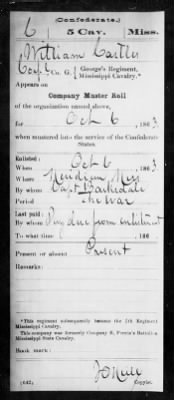 (Confederate.)
C 5 Cav. Miss.
William Castles
Corpl, Co. G, George's Regiment, Mississippi Cavalry.*
Appears on
Company Muster Roll
of the organization named above,
for Oct 6, 1863
when mustered into the service of the Confederate States.
Enlisted:
When Oct 6, 1863
Where Meridian, Miss
By whom Capt Barksdale
Period the War
Last paid:
By whom Pay due from enlistment
To what time , 186
Present or absent Present
Remarks:
*This regiment subsequently became the 5th Regiment Mississippi Cavalry.
This company was formerly Company B, Perrin's Battalion Mississippi State Cavalry.
Book mark:
(642)
Copyist.